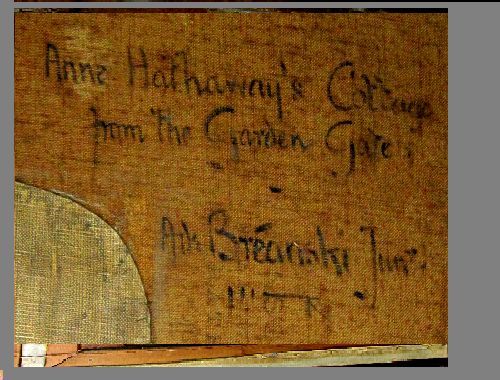 Anne Hathaway's Cottage
from the Garden Gate.
Bréanski Junr.